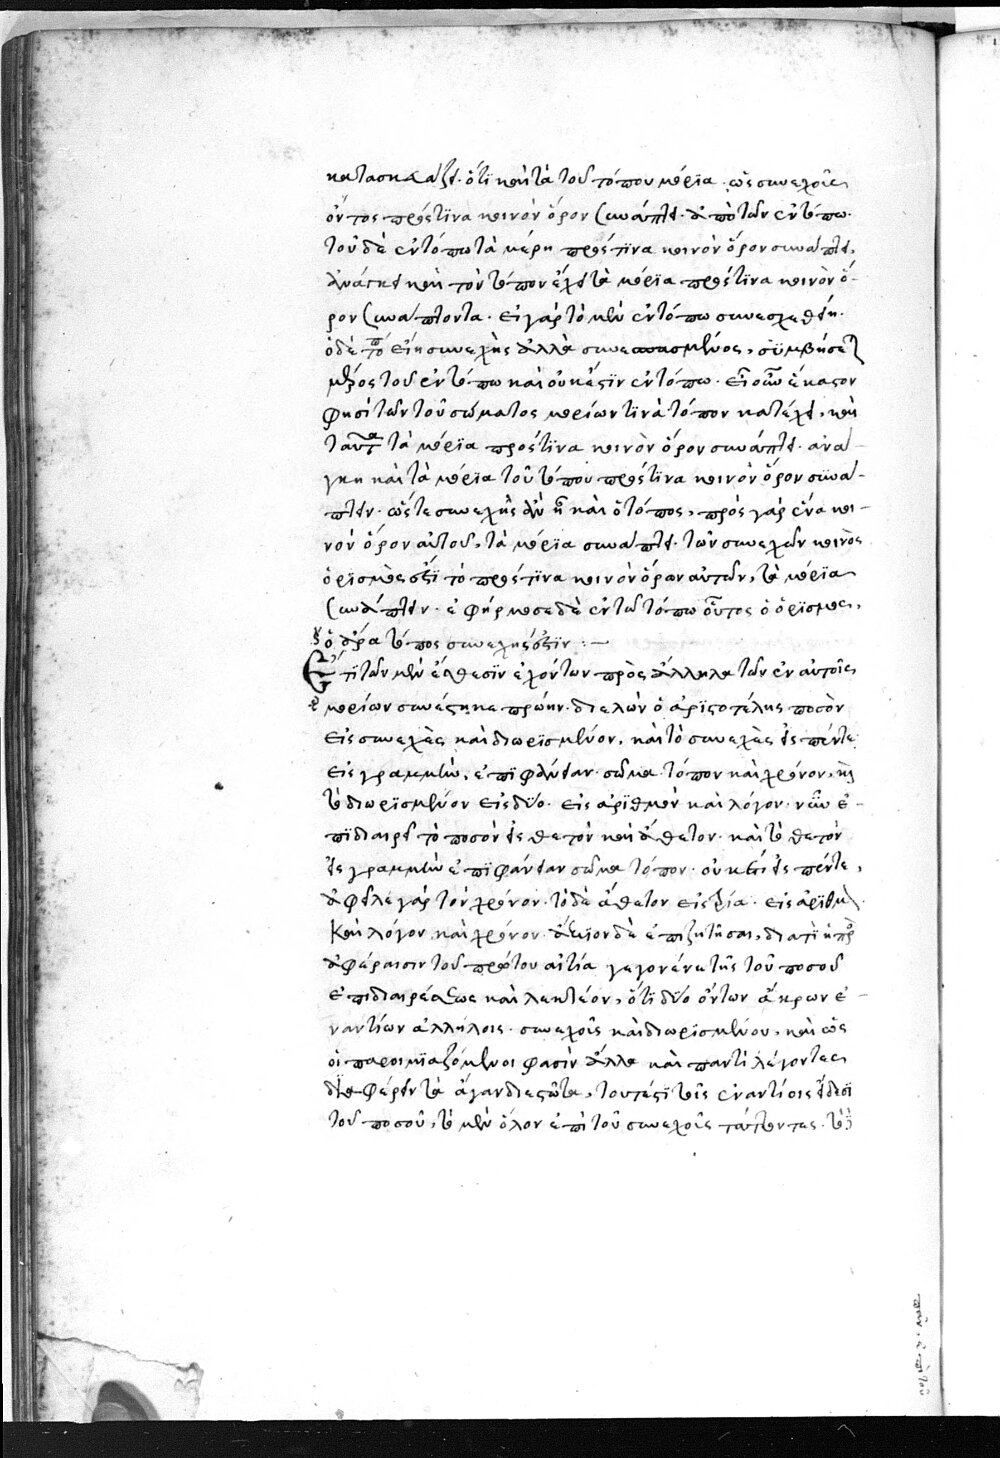 κατασκευάζει· ὅτι καὶ τὰ τοῦ τόπου μόρια ὡς συνεχοῦς
ὄντος πρός τινα κοινὸν ὅρον συνάπτει· ἀπὸ τῶν ἐν τόπω·
τοῦ δὲ ἐν τόπω τὰ μέρη πρός τινα κοινὸν ὅρον συνάπτει,
ἀνάγκη καὶ τὸν τόπον ἔχειν τὰ μόρια πρός τινα κοινὸν ὅ-
ρον συνάπτοντα· εἰ γὰρ τὸ μὲν ἐν τόπω συνεχὲς εἴη·
ὁ δὲ τόπος εἴη συνεχὴς ἀλλὰ συνεσπασμένος, συμβήσεται
μέρος τοῦ ἐν τόπω καὶ οὐκ ἔστιν ἐν τόπω· εἰ οὖν ἕκαστον
φησὶ τῶν τοῦ σώματος μορίων τινὰ τόπον κατέχει, καὶ
ταῦτα τὰ μόρια πρός τινα κοινὸν ὅρον συνάπτει· ἀνάγ-
κη καὶ τὰ μόρια τοῦ τόπου πρός τινα κοινὸν ὅρον συνά-
πτειν· ὥστε συνεχὴς ἂν ἦ καὶ ὁ τόπος, πρὸς γὰρ ἕνα κοι-
νὸν ὅρον αὐτοῦ, τὰ μόρια συνάπτει· τῶν συνεχῶν κοινὸς
ὁρισμὸς ἐστὶ τὸ πρός τινα κοινὸν ὅρον αὐτῶν, τὰ μόρια
συνάπτειν· ἐφήρμοσε δὲ ἐν τῶ τόπω οὗτος ὁ ὁρισμὸς,
ὁ ἄρα τόπος συνεχής ἐστιν:—
Ἔτι τῶν μὲν ἐκ θέσιν ἐχόντων πρὸς ἄλληλα τῶν ἐν αὐτοῖς
μορίων συνέστηκε πρώην· διελὼν ὁ ἀριστοτέλης ποσὸν
εἰς συνεχὲς καὶ διωρισμένον, καὶ τὸ συνεχὲς εἰς πέντε
εἰς γραμμὴν, ἐπιφάνειαν· σῶμα· τόπον καὶ χρόνον, καὶ
τὸ διωρισμένον εἰς δύο· εἰς ἀριθμὸν καὶ λόγον· νῦν ἐ-
πιδιαιρεῖ τὸ ποσὸν εἰς θετὸν καὶ ἄθετον· καὶ τὸ θετὸν
εἰς γραμμὴν ἐπιφάνειαν σῶμα τόπον· οὐκέτι εἰς πέντε,
ἀφεῖλε γὰρ τὸν χρόνον· τὸ δὲ ἄθετον εἰς τρία· εἰς ἀριθμὸν
καὶ λόγον καὶ χρόνον· ἄξιον δὲ ἐπιζητῆσαι, διατί ἡ πρὸς
διαφέραισιν τοῦ πρώτου αἰτία γεγονένε τῆς τοῦ ποσοῦ
ἐπιδιαιρέσεως καὶ λεκτέον, ὅτι δύο ὄντων ἄκρων ἐ-
ναντίων ἀλλήλοις· συνεχοῦς καὶ διωρισμένου, καὶ ὡς
οἱ παροιμιαζόμενοι φασὶν ἀλλὰ καὶ παντὶ λέγοντες
διαφέρειν τὰ ἄγαν διεστῶτα, τουτέστι τοῖς ἐναντίοις εἴδεσι
τοῦ ποσοῦ, τὸ μὲν ὅλον ἐπὶ τοῦ συνεχοῦς τάττοντες· τὸ δὲ